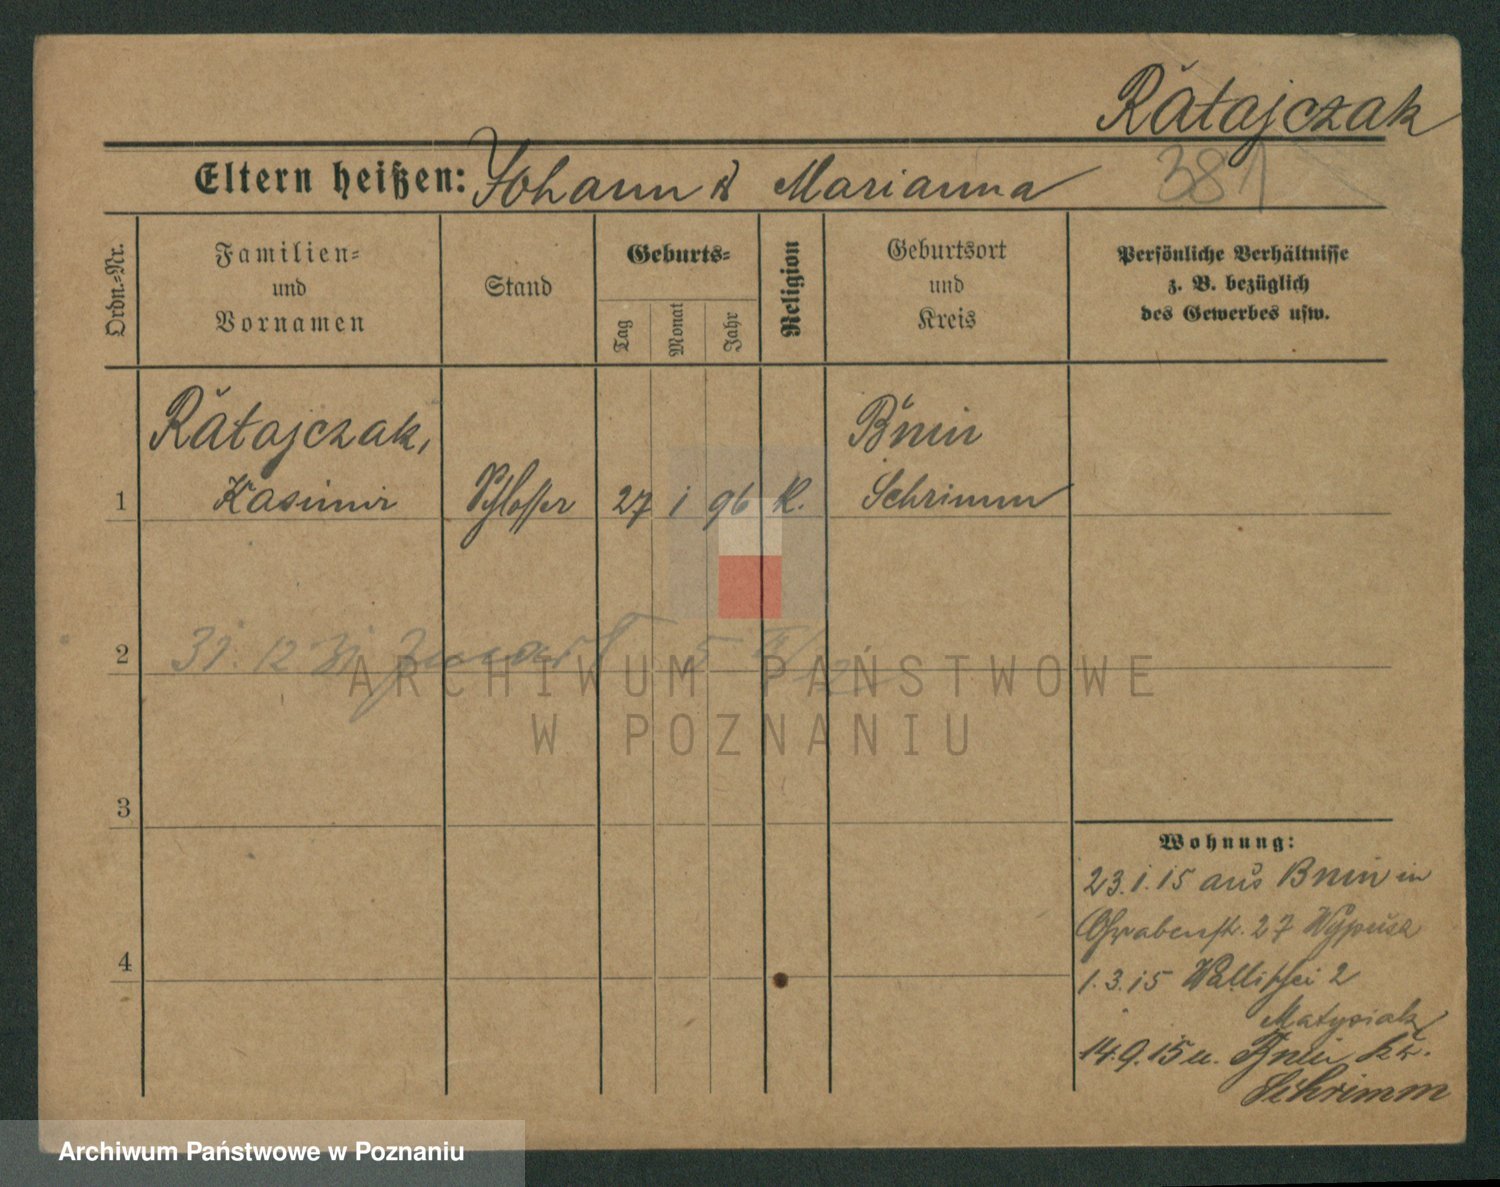 Ratajczak
381
Eltern heißen: Johann & Marianna
Ordn.-Nr.
Familien-
und
Vornamen
Stand
Geburts-
Tag
Monat
Jahr
Religion
Geburtsort
und
Kreis
Persönliche Verhältnisse
z. B. bezüglich
des Gewerbes usw.
Ratajczak,
Bnin
1 Kasimir Schlosser 27 i 96 K. Schrimm
2
31. 12
ARCHIWUM PAŃSTWOWE
W POZNANIU
3
Wohnung:
23.i.15 aus Bnin in
Grabenstr. 27 Wypusz
4
1.3.15 Wallischei 2
Matysiak
14.9.15 n. Bnin Kr.
Schrimm
Archiwum Państwowe w Poznaniu